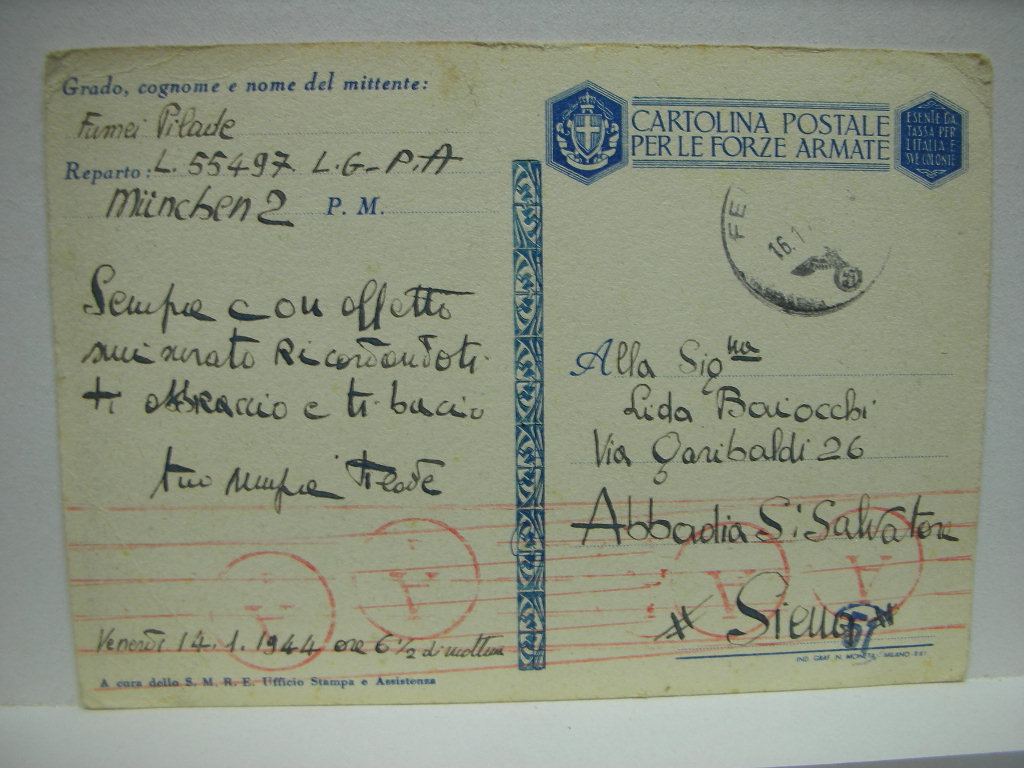 Grado, cognome e nome del mittente:
Fumei Pilade
Reparto: L. 55497 L.G-P.A
München 2 P. M.
Sempre con affetto
smisurato Ricordandoti
ti abbraccio e ti bacio
tuo sempre Pilade
Venerdì 14.1.1944 ore 6 1/2 di mattina
A cura dello S. M. R. E. Ufficio Stampa e Assistenza
CARTOLINA POSTALE
PER LE FORZE ARMATE
ESENTE DA
TASSA PER
L'ITALIA E
SUE COLONIE
FE
16.1
Alla Signa
Lida Baiocchi
Via Garibaldi 26
Abbadia S. Salvatore
Siena
IND. GRAF. N. MONETA - MILANO